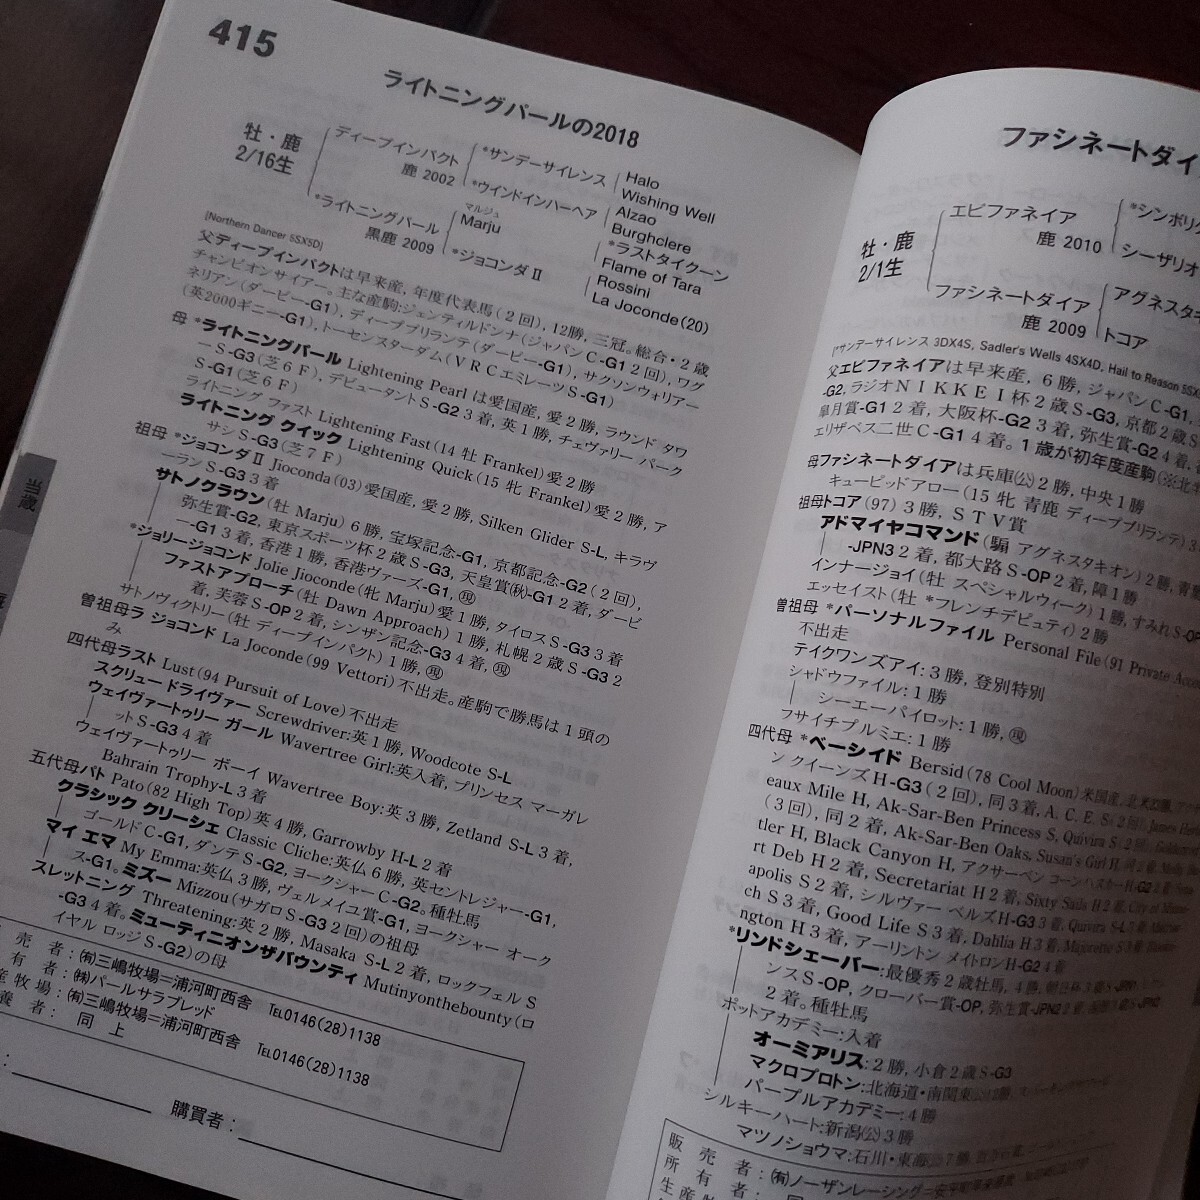 415
ライトニングパールの2018
牡・鹿
2/16生
ディープインパクト
鹿 2002
*サンデーサイレンス
*ウインドインハーヘア
Halo
Wishing Well
Alzao
Burghclere
*ライトニングパール
黒鹿 2009
マルジュ
Marju
*ジョコンダⅡ
*ラストタイクーン
Flame of Tara
Rossini
La Joconde(20)
[Northern Dancer 5SX5D]
父ディープインパクトは早来産, 年度代表馬(2回), 12勝, 三冠。総合・2歳
チャンピオンサイアー。主な産駒:ジェンティルドンナ(ジャパンC-G1 2回), ワグ
ネリアン(ダービー-G1), ディープブリランテ(ダービー-G1), サクソンウォリアー
(英2000ギニー-G1), トーセンスターダム(VRCエミレーツS-G1)
母 *ライトニングパール Lightening Pearl は愛国産, 愛2勝, ラウンド タワ
ーS-G3(芝6F), デビュータントS-G2 3着, 英1勝, チェヴァリー パーク
S-G1(芝6F)
ライトニング ファスト Lightening Fast(14 牡 Frankel)愛2勝
ライトニング クイック Lightening Quick(15 牝 Frankel)愛2勝, ア
サシS-G3(芝7F)
祖母 *ジョコンダⅡ Jioconda(03)愛国産, 愛2勝, Silken Glider S-L, キラヴ
ーランS-G3 3着
サトノクラウン(牡 Marju)6勝, 宝塚記念-G1, 京都記念-G2(2回),
弥生賞-G2, 東京スポーツ杯2歳S-G3, 天皇賞(秋)-G1 2着, ダービ
ー-G1 3着, 香港1勝, 香港ヴァーズ-G1, 現
*ジョリージョコンド Jolie Jioconde(牝 Marju)愛1勝, タイロスS-G3 3着
ファストアプローチ(牡 Dawn Approach)1勝, 札幌2歳S-G3 2
着, 芙蓉S-OP 2着, シンザン記念-G3 4着, 現
サトノヴィクトリー(牡 ディープインパクト)1勝, 現
曽祖母ラ ジョコンド La Joconde(99 Vettori)不出走。産駒で勝馬は1頭の
み
四代母ラスト Lust(94 Pursuit of Love)不出走
スクリュー ドライヴァー Screwdriver:英1勝, Woodcote S-L
ウェイヴァートゥリー ガール Wavertree Girl:英入着, プリンセス マーガレ
ットS-G3 4着
ウェイヴァートゥリー ボーイ Wavertree Boy:英3勝, Zetland S-L 3着,
Bahrain Trophy-L 3着
五代母パト Pato(82 High Top)英4勝, Garrowby H-L 2着
クラシック クリーシェ Classic Cliche:英仏6勝, 英セントレジャー-G1,
ゴールドC-G1, ダンテS-G2, ヨークシャーC-G2。種牡馬
マイ エマ My Emma:英仏3勝, ヴェルメイユ賞-G1, ヨークシャー オーク
ス-G1。ミズー Mizzou(サガロS-G3 2回)の祖母
スレットニング Threatening:英2勝, Masaka S-L 2着, ロックフェルS
-G3 4着。ミューティニオンザバウンティ Mutinyonthebounty(ロ
イヤル ロッジS-G2)の母
売者:(有)三嶋牧場=浦河町西舎 TEL0146(28)1138
有者:(株)パールサラブレッド
産牧場:(有)三嶋牧場=浦河町西舎 TEL0146(28)1138
養者:同上
購買者:
当歳
ファシネートダイ
牡・鹿
2/1生
エピファネイア
鹿 2010
*シンボリク
シーザリオ
ファシネートダイア
鹿 2009
アグネスタキ
トコア
[*サンデーサイレンス 3DX4S, Sadler's Wells 4SX4D, Hail to Reason 5SX
父エピファネイアは早来産, 6勝, ジャパンC-G1,
G2, ラジオNIKKEI杯2歳S-G3, 京都2歳S
皐月賞-G1 2着, 大阪杯-G2 3着, 弥生賞-G2 4着,
エリザベス二世C-G1 4着。1歳が初年度産駒(※北半
母ファシネートダイアは兵庫(公)2勝, 中央1勝
キューピッドアロー(15 牝 青鹿 ディープブリランテ)3
祖母トコア(97)3勝, STV賞
アドマイヤコマンド(騸 アグネスタキオン)2勝, 青葉
-JPN3 2着, 都大路S-OP 2着, 障1勝
インナージョイ(牡 スペシャルウィーク)1勝, すみれS-OP
エッセイスト(牡 *フレンチデピュティ)2勝
曽祖母 *パーソナルファイル Personal File(91 Private Acco
不出走
テイクワンズアイ:3勝, 登別特別
シャドウファイル:1勝
シーエーパイロット:1勝, 現
フサイチプルミエ:1勝
四代母 *ベーシイド Bersid(78 Cool Moon)米国産, 北米
ン クイーンズH-G3(2回), 同3着, A. C. E. S(2回), James
eaux Mile H, Ak-Sar-Ben Princess S, Quivira S(2回),
(3回), 同2着, Ak-Sar-Ben Oaks, Susan's Girl H, 同2着,
tler H, Black Canyon H, アクサーベン コーンハスカーH-G2 2着,
rt Deb H 2着, Secretariat H 2着, Sixty Sails H 2着, City of
apolis S 2着, シルヴァー ベルズH-G3 3着, Quivira S-L 7着,
ch S 3着, Good Life S 3着, Dahlia H 3着, Majorette S 3着,
ngton H 3着, アーリントン メイトロンH-G2 4着
*リンドシェーバー:最優秀2歳牡馬, 4勝, 朝日杯3歳S-JPN1,
ンスS-OP, クローバー賞-OP, 弥生賞-JPN2 2着,
2着。種牡馬
ポットアカデミー:入着
オーミアリス:2勝, 小倉2歳S-G3
マクロプロトン:北海道・南関東(公)12勝,
パープルアカデミー:4勝
シルキーハート:新潟(公)3勝
マツノショウマ:石川・東海(公)7勝,
販売者:(有)ノーザンレーシング=安平町
所有者:同上
生産牧